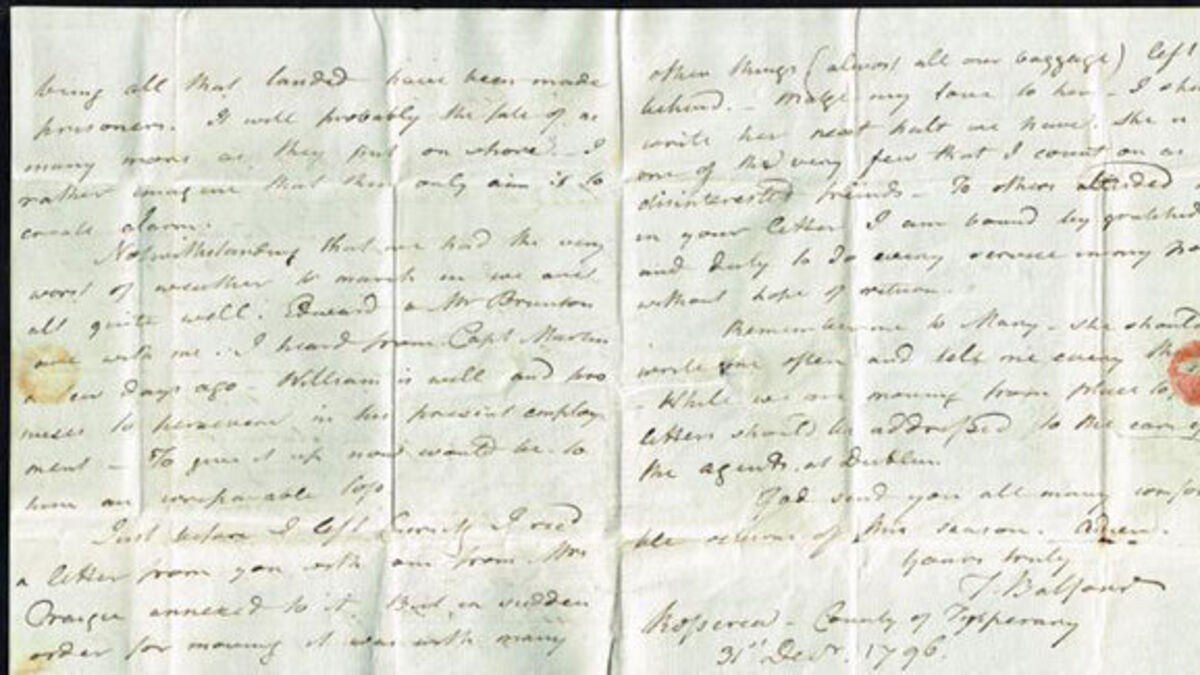 being all that landed have been made
prisoners. It will probably the fate of as
many more as they put on shore. I
rather imagine that their only aim is to
create alarm.
Notwithstanding that we had the very
worst of weather to march in we are
all quite well. Edward Mr Brunton
are with me. I heard from Capt Martin
a few days ago - William is well and pro
mises to persevere in his present employ
ment - To give it up now would be to
him an irreparable loss
Just before I left I recd
a letter from you with one from Mrs
annexed to it. But in sudden
order for moving it was with many
other things (almost all our baggage) left
behind. - Make my love to her - I sha
write her next halt we have. She is
one of the very few that I count on as
disinterested friends - To others alluded
in your letter I am bound by gratitud
and duty to do every service in my po
without hope of return.
Remember me to Mary - she should
write me often and tell me every thi
- While we are moving from place to
letters should be addressed to the care of
the agents at Dublin.
God send you all many comfor
ble returns of this season. Adieu.
Yours truly
Balfour
Roscrea - County of Tipperary
31st Decr. 1796.